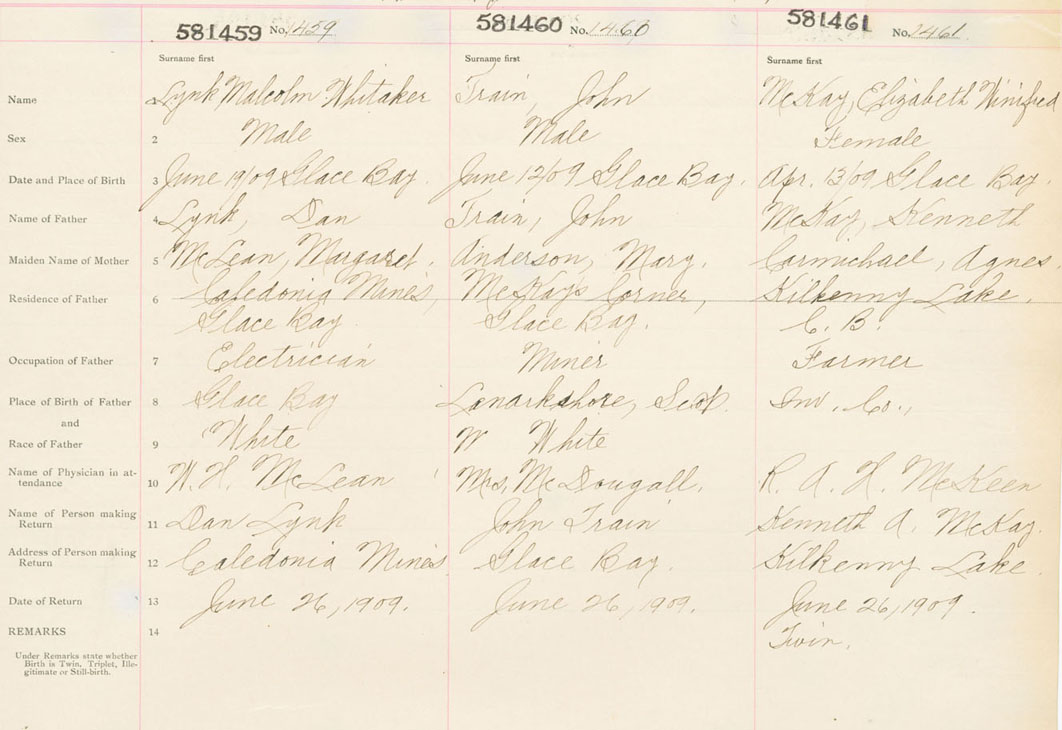 581459 No. 1459 581460 No. 1460 581461 No. 1461
Surname first Surname first Surname first
Name 1 Lynk Malcolm Whitaker Train, John McKay, Elizabeth Winifred
Sex 2 Male Male Female
Date and Place of Birth 3 June 19/09 Glace Bay. June 12/09 Glace Bay. Apr. 13/09 Glace Bay.
Name of Father 4 Lynk, Dan Train, John McKay, Kenneth
Maiden Name of Mother 5 McLean, Margaret. Anderson, Mary. Carmichael, Agnes
Residence of Father 6 Caledonia Mines, McKays Corner, Kilkenny Lake,
Glace Bay. Glace Bay. C. B.
Occupation of Father 7 Electrician Miner Farmer
Place of Birth of Father 8 Glace Bay Lanarkshore, Scot. Inv. Co.,
and
Race of Father 9 White W White
Name of Physician in at- 10 W. H. McLean Mrs. McDougall. R. A. H. McKeen
tendance
Name of Person making 11 Dan Lynk John Train Kenneth A. McKay.
Return
Address of Person making 12 Caledonia Mines Glace Bay. Kilkenny Lake.
Return
Date of Return 13 June 26, 1909. June 26, 1909. June 26, 1909.
REMARKS 14 Twin.
Under Remarks state whether
Birth is Twin, Triplet, Ille-
gitimate or Still-birth.